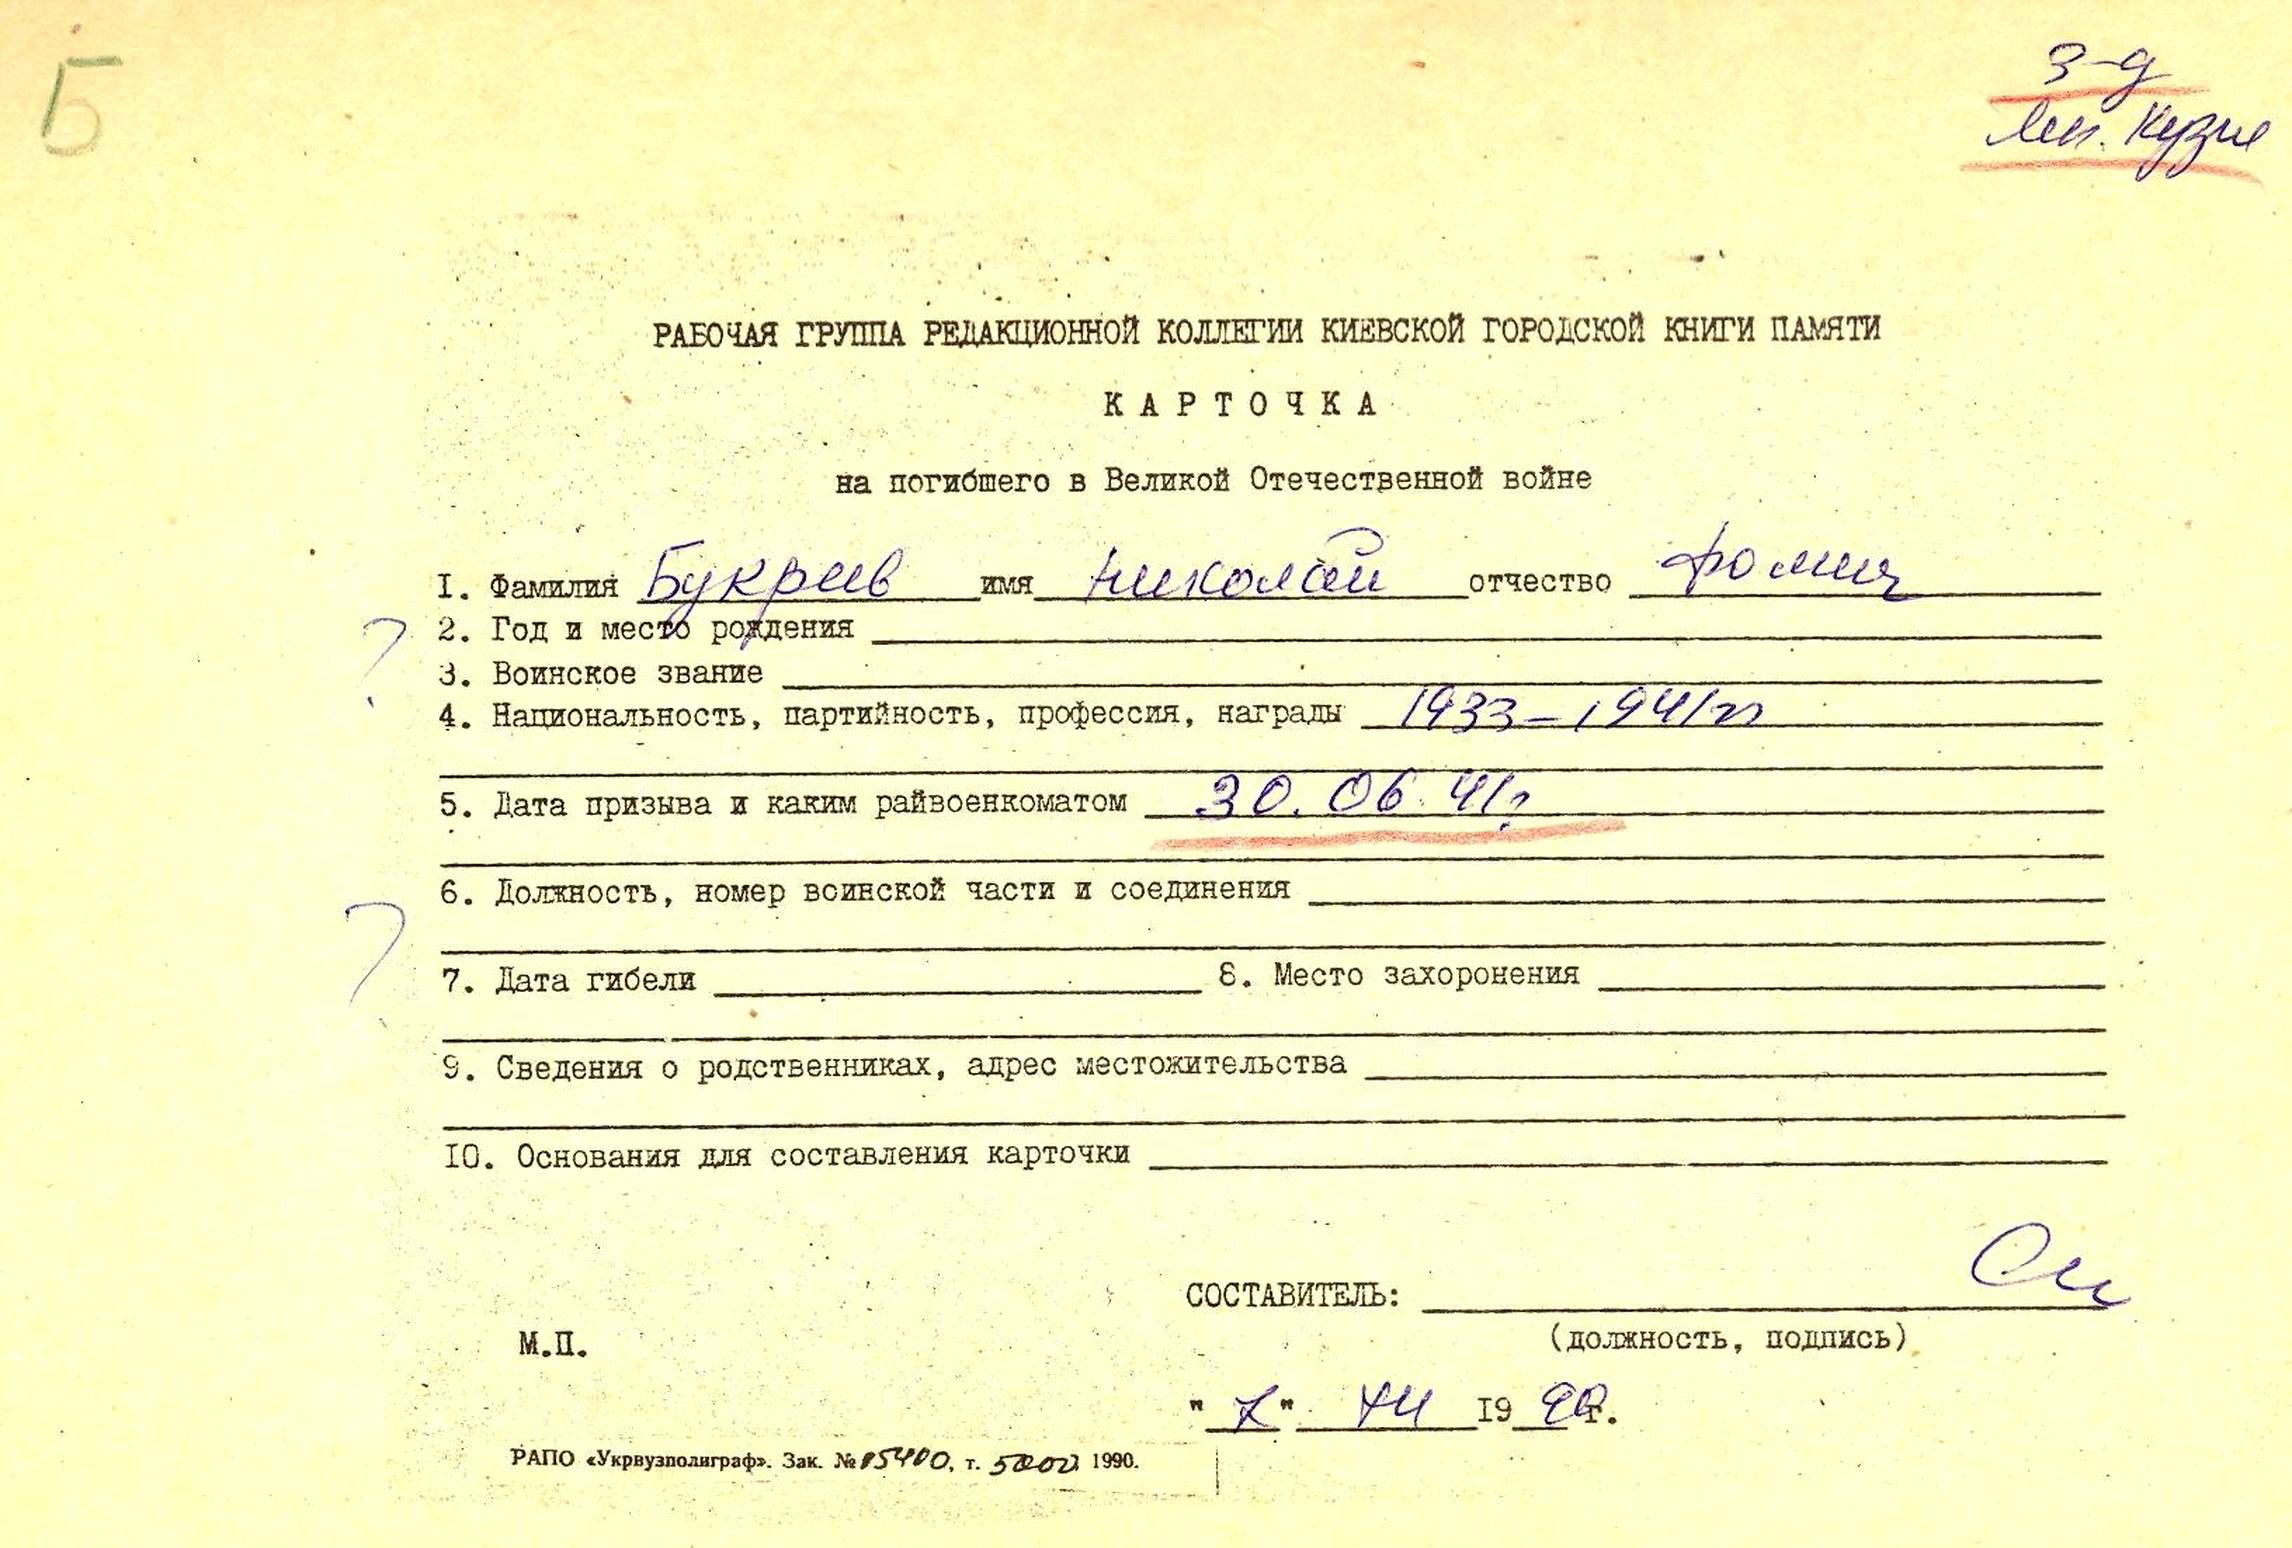 Б
з-д
Лен. Кузня
РАБОЧАЯ ГРУППА РЕДАКЦИОННОЙ КОЛЛЕГИИ КИЕВСКОЙ ГОРОДСКОЙ КНИГИ ПАМЯТИ
КАРТОЧКА
на погибшего в Великой Отечественной войне
I. Фамилия Букреев имя Николай отчество Фомич
? 2. Год и место рождения
3. Воинское звание
4. Национальность, партийность, профессия, награды 1933-1941гг
5. Дата призыва и каким райвоенкоматом 30.06.41г
6. Должность, номер воинской части и соединения
?
7. Дата гибели 8. Место захоронения
9. Сведения о родственниках, адрес местожительства
IO. Основания для составления карточки
СОСТАВИТЕЛЬ:
(должность, подпись)
М.П.
"7" XII I9 90г.
РАПО «Укрвузполиграф». Зак. № 05400, т. 5000 1990.